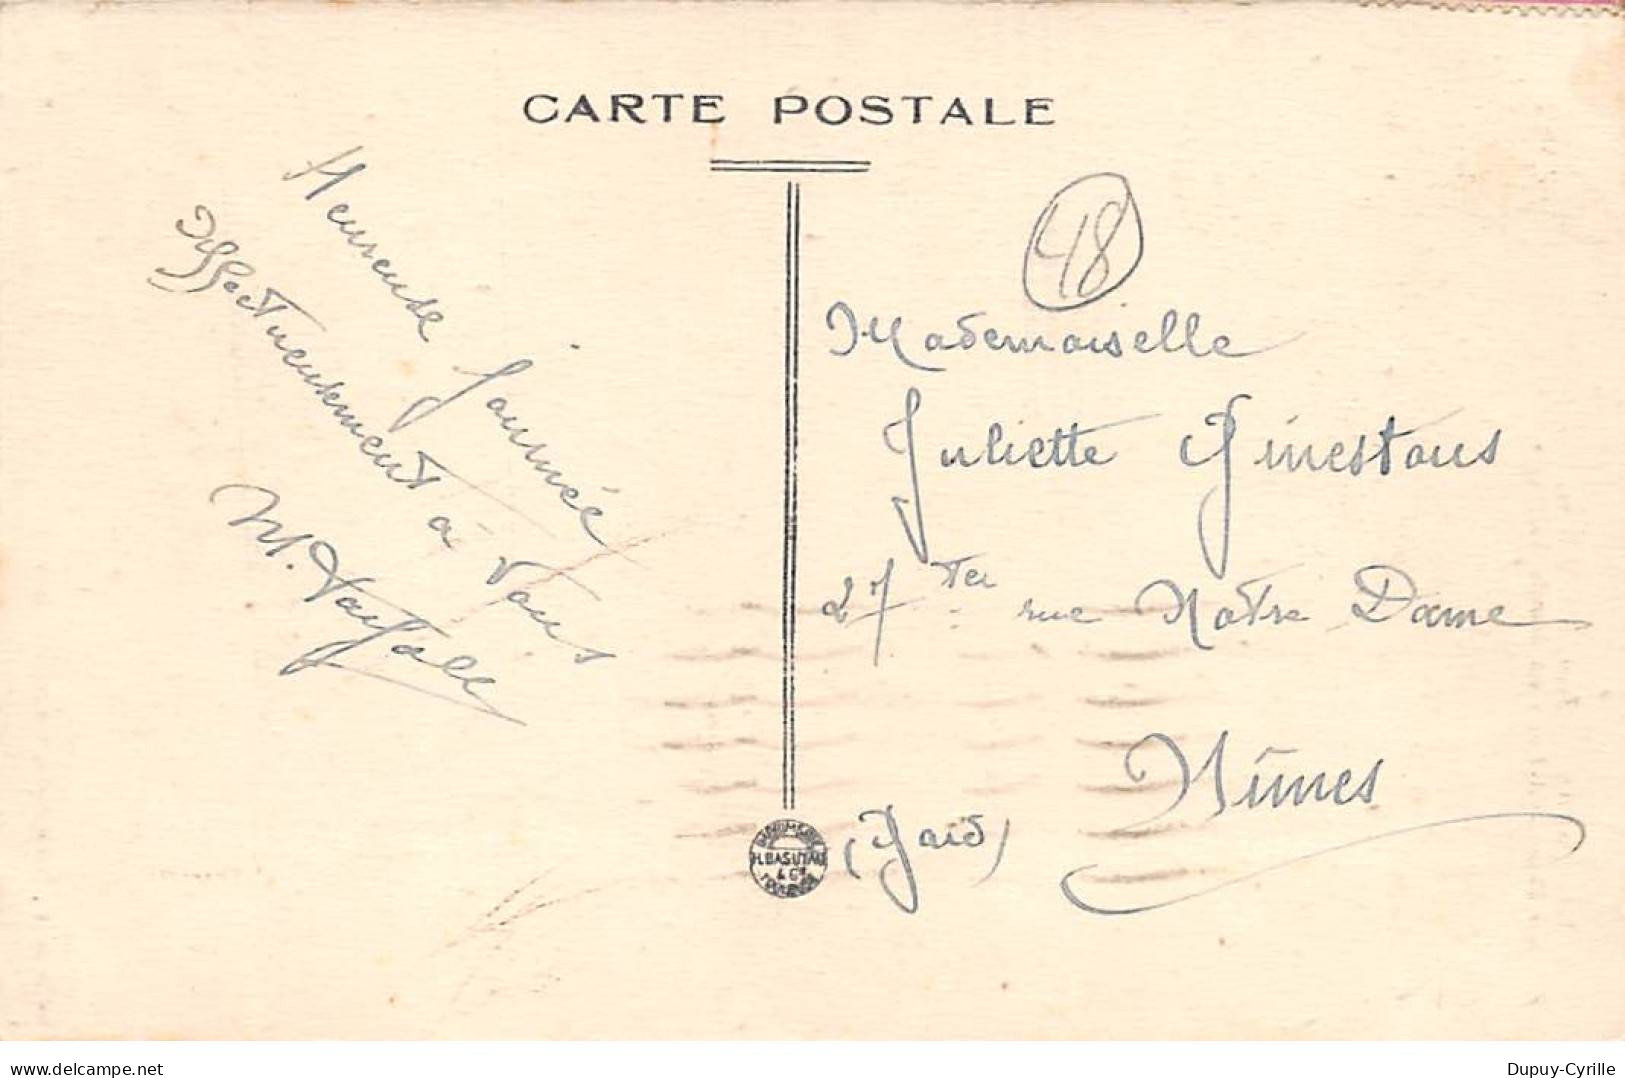 CARTE POSTALE
Heureuse journée
Affectueusement à vous
48
Mademoiselle
Juliette Ginestous
27 ter rue Notre Dame
Nîmes
(Gard)
H. BASUYAU
& Cie
TOULOUSE
delcampe.net
Dupuy-Cyrille